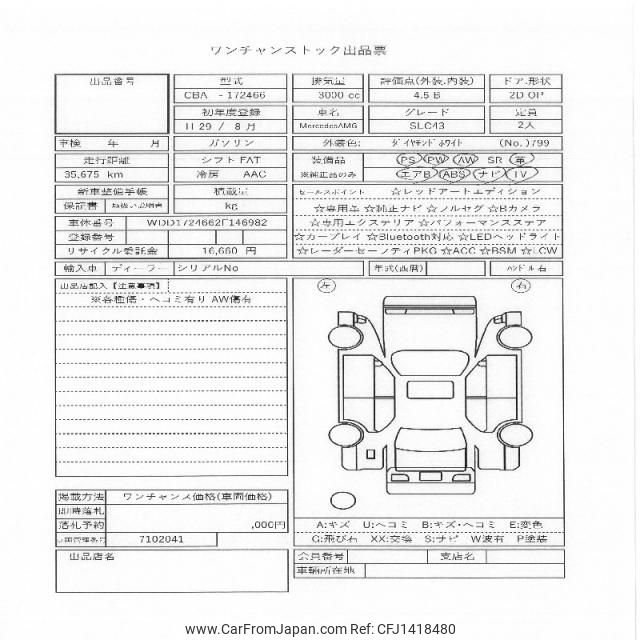 ワンチャンストック出品票
出品番号 型式 排気量 評価点(外装.内装) ドア.形状
CBA - 172466 3000 cc 4.5 B 2D OP
初年度登録 車名 グレード 定員
H 29 / 8 月 MercedesAMG SLC43 2人
車検 年 月 ガソリン 外装色: ダイヤモンドホワイト (No.)799
走行距離 シフト FAT 装備品 PS PW AW SR 革
35,675 km 冷房 AAC ※純正品のみ エアB ABS ナビ TV
新車整備手帳 積載量 セールスポイント ☆レッドアートエディション
保証書 取扱い説明書 kg ☆専用革 ☆純正ナビ ☆フルセグ ☆Bカメラ
車体番号 WDD1724662F146982 ☆専用エクステリア ☆パフォーマンスステア
登録番号 ☆カープレイ ☆Bluetooth対応 ☆LEDヘッドライト
リサイクル委託金 16,660 円 ☆レーダーセーフティPKG ☆ACC ☆BSM ☆LCW
輸入車 ディーラー シリアルNo 年式(西暦) ハンドル 右
出品店記入【注意事項】 左 右
※各種傷・ヘコミ有り AW傷有
掲載方法 ワンチャンス価格(車両価格)
即時落札
落札予約 ,000円 A:キズ U:ヘコミ B:キズ・ヘコミ E:変色
7102041 G:飛び石 XX:交換 S:サビ W波有 P塗装
出品店名 会員番号 支店名
車輌所在地
www.CarFromJapan.com Ref: CFJ1418480